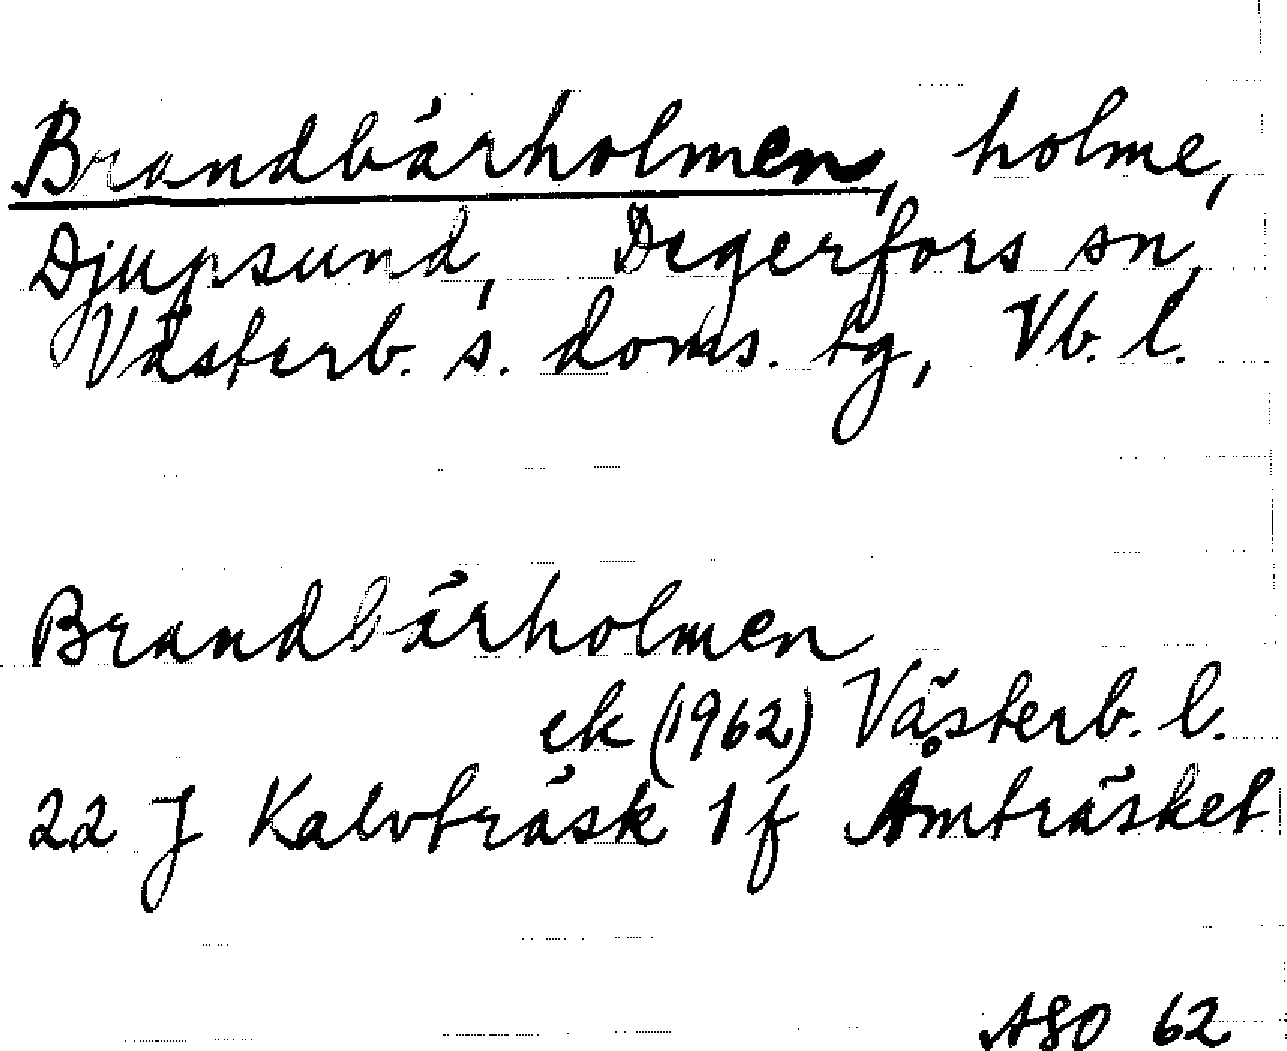 Brandbärholmen, holme,
Djupsund, Degerfors sn,
Västerb. s. doms. tg, Vb. l.
Brandbärholmen
ek (1962) Västerb. l.
22 J Kalvträsk 1 f Åmträsket
ASO 62